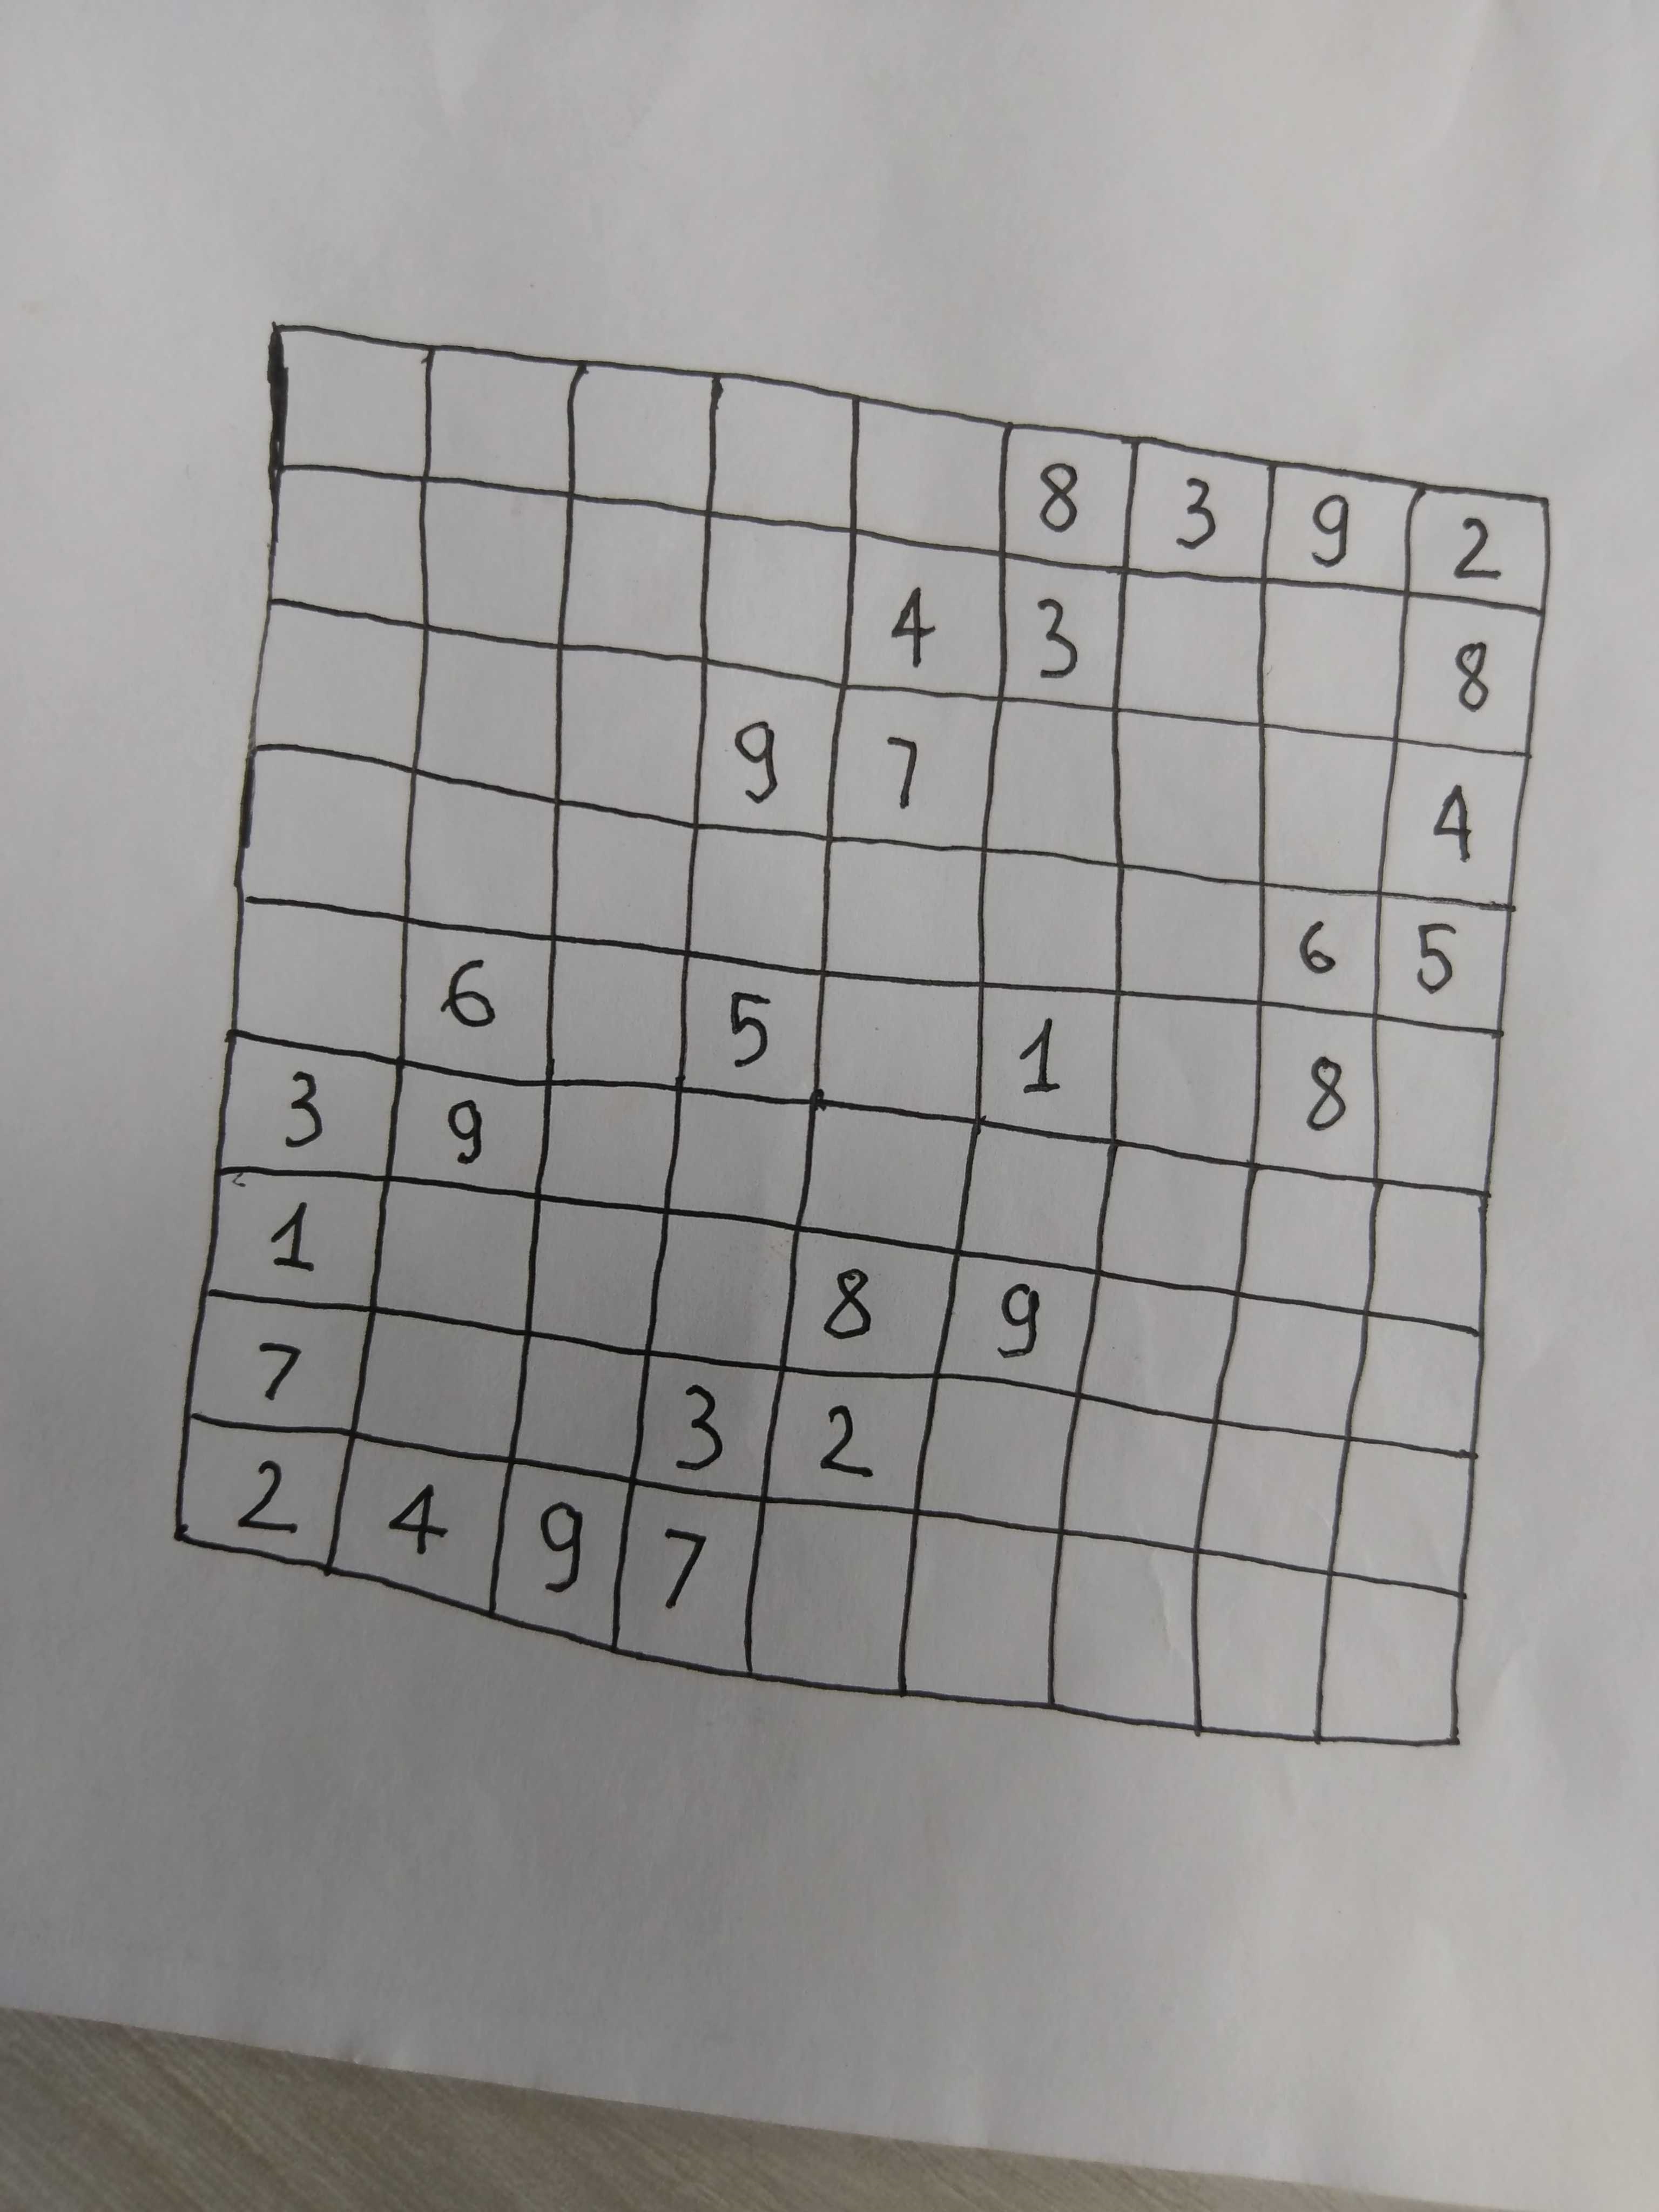 8 3 9 2
4 3 8
9 7 4
6 5
6 5 1 8
3 9
1 8 9
7 3 2
2 4 9 7